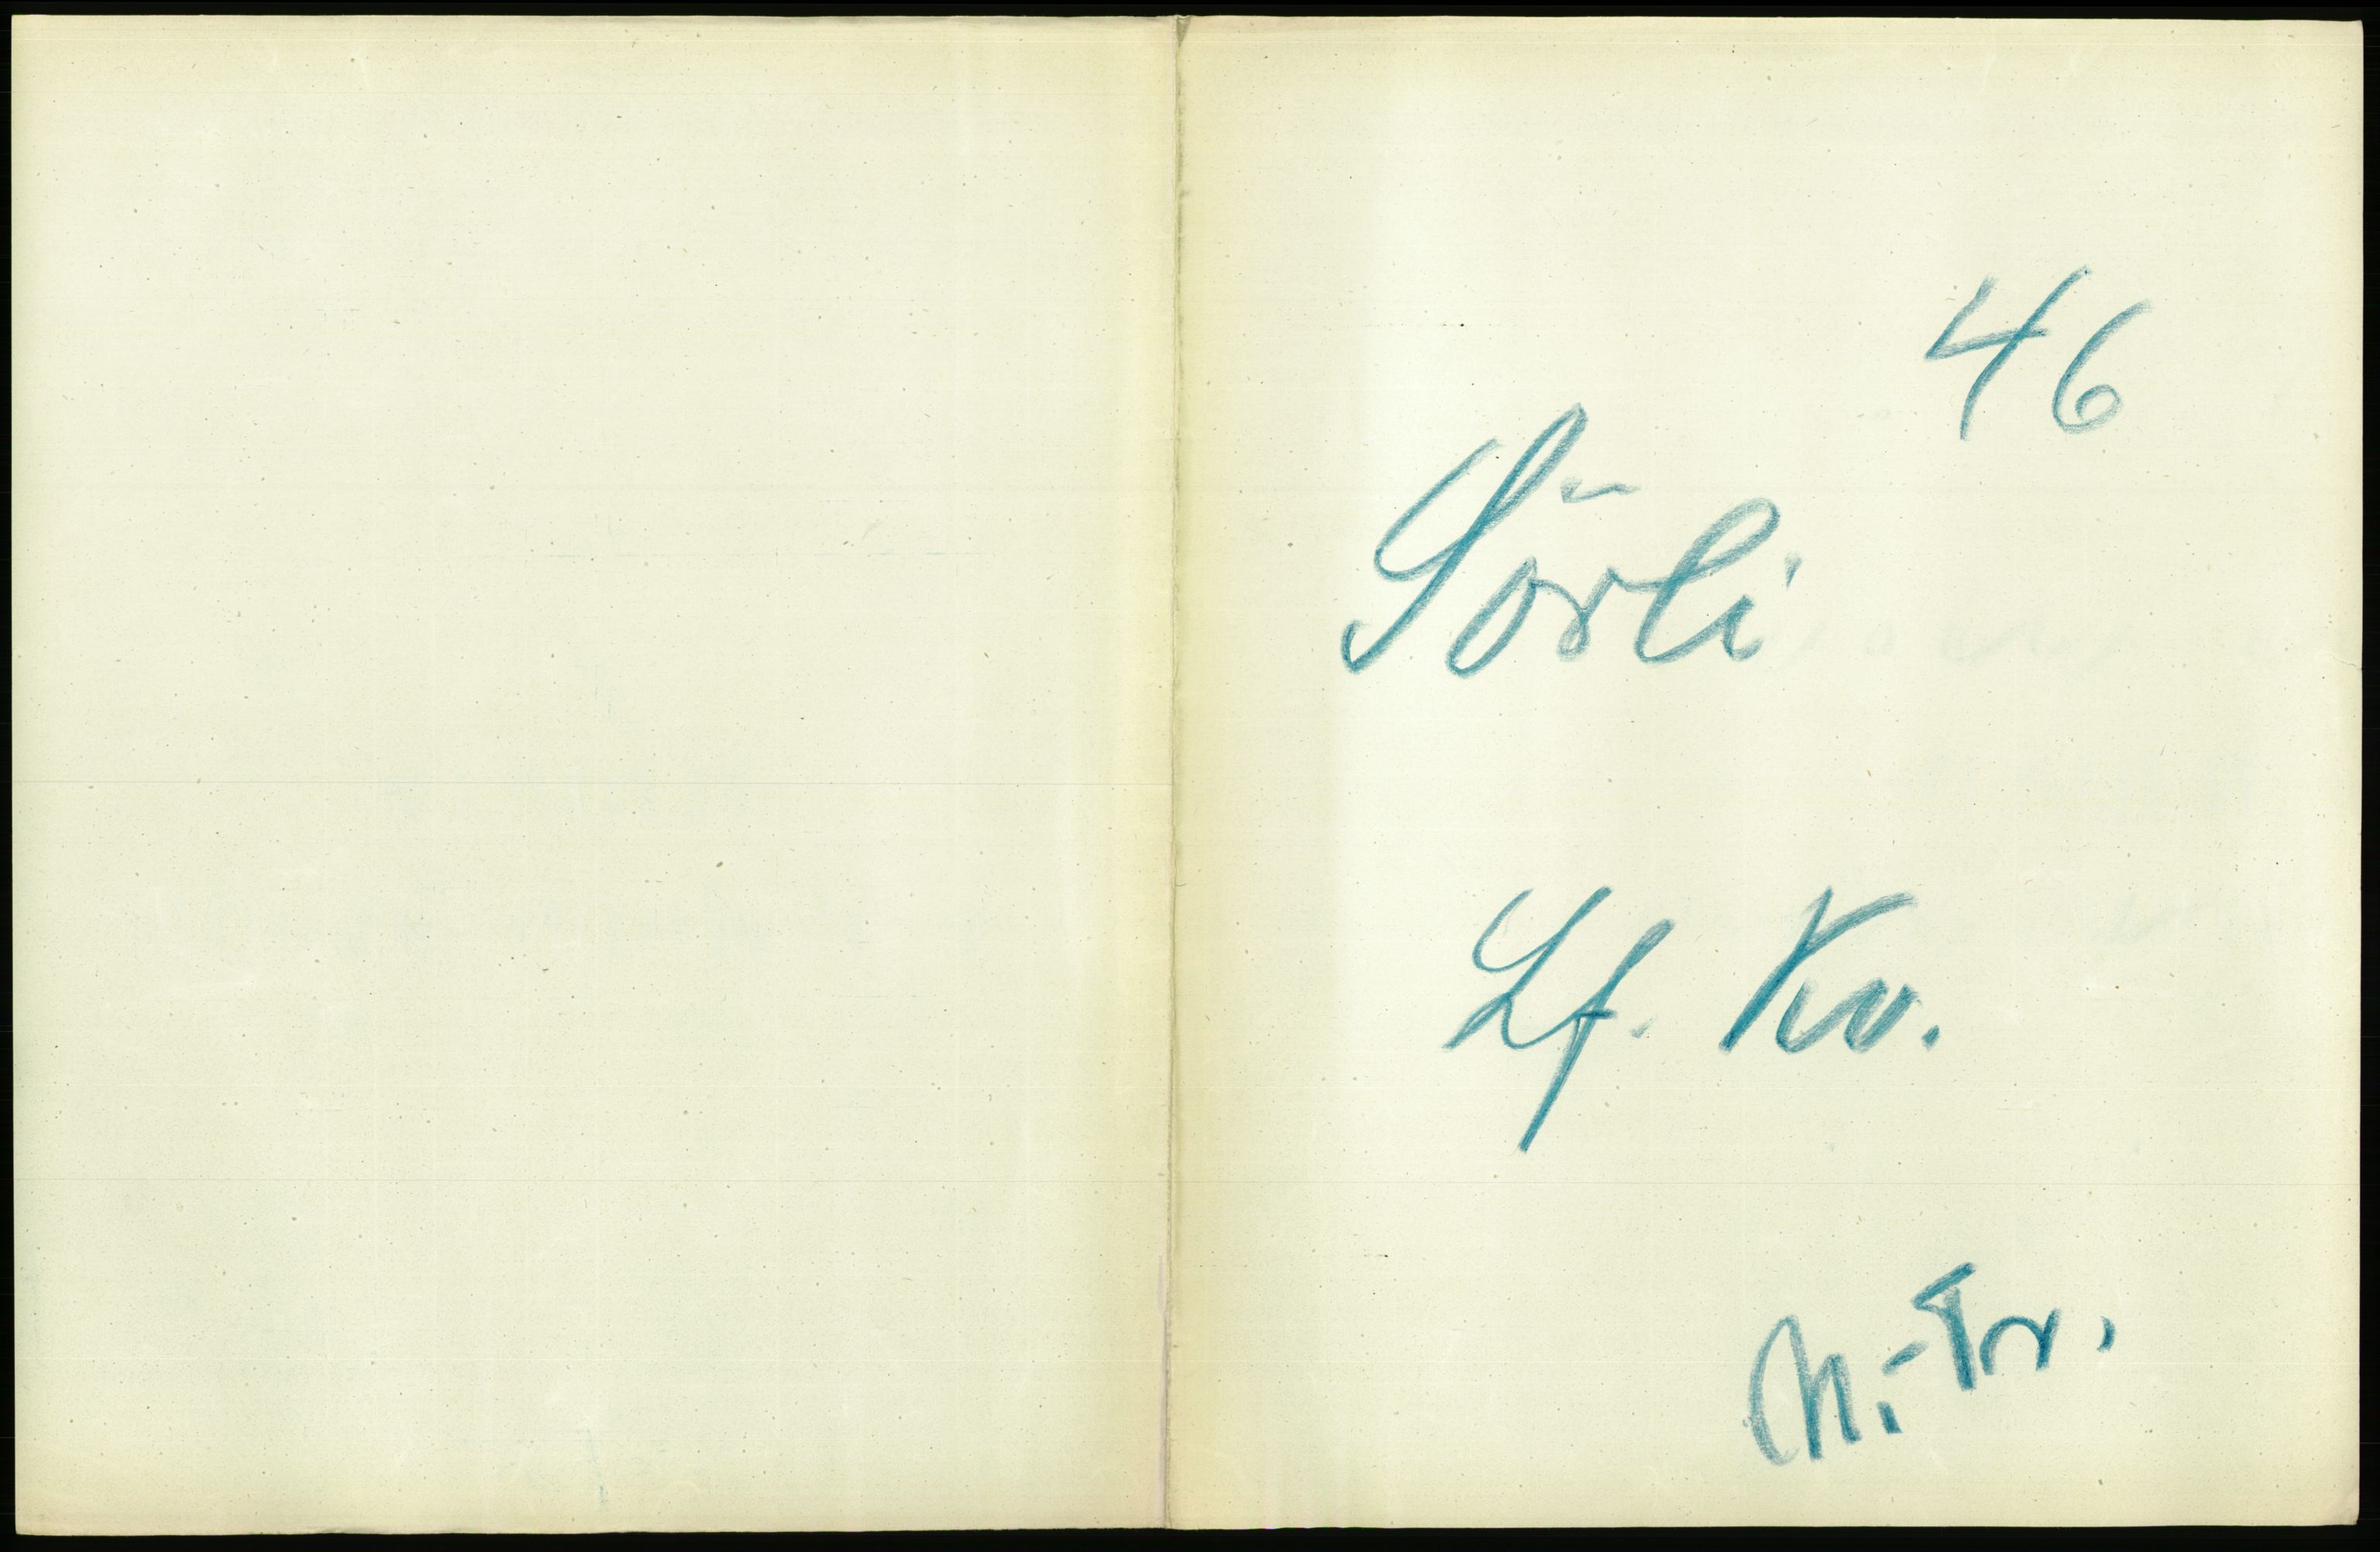 46
Sörli
Lf. Kv.
N.-Tr.